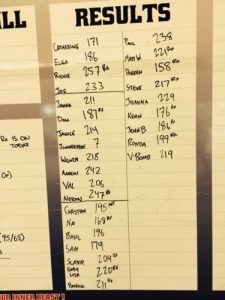 ALL
RESULTS
Catherine 171
Elga 186
Richie 257 Rx
Joe 233
Janna 211
Dan 187 Rx
Janice 214
7
Wendy 218
Aaron 242
Val 206
Norah 247 Rx
Christian 195
Nai 168 Rx
Basil 196
Sam 179
204
220 Rx
Patrice 211 Rx
Paul 238
Matt W 221 Rx
Darren 158 Rx
Steve 217 Rx
Joanna 229
Kevin 176
John B 186 Rx
Ronda 199 Rx
V-Bomb 219
IS ON
TODAY
(95/65)
UR INNER BEAST!